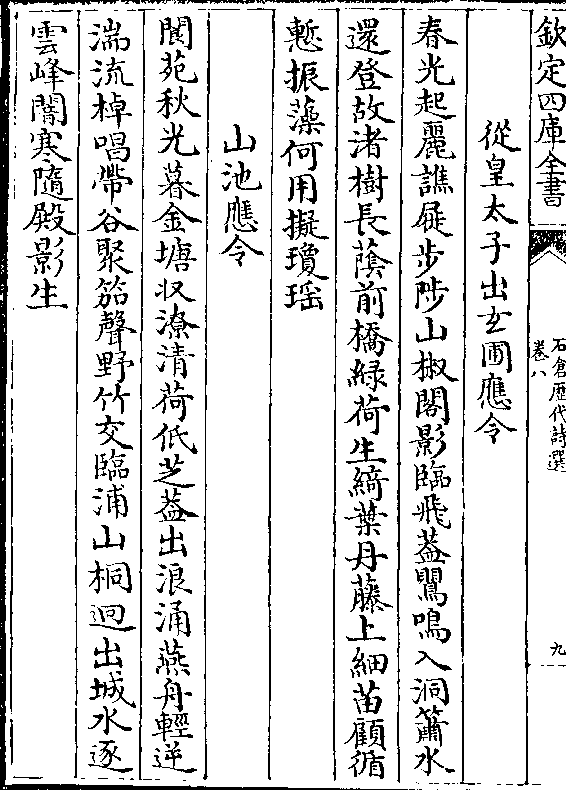 欽定四庫全書
石倉歴代詩選
卷八
九
從皇太子出玄圃應令
春光起麗譙屣步陟山椒閣影臨飛葢鸎鳴入洞簫水
還登故渚樹長䕃前橋緑荷生綺葉丹藤上細苗顧循
慙振藻何用擬瓊瑶
山池應令
閬苑秋光暮金塘収潦清荷低芝葢出浪涌燕舟輕逆
湍流棹唱帶谷聚笳聲野竹交臨浦山桐迥出城水逐
雲峰闇寒隨殿影生